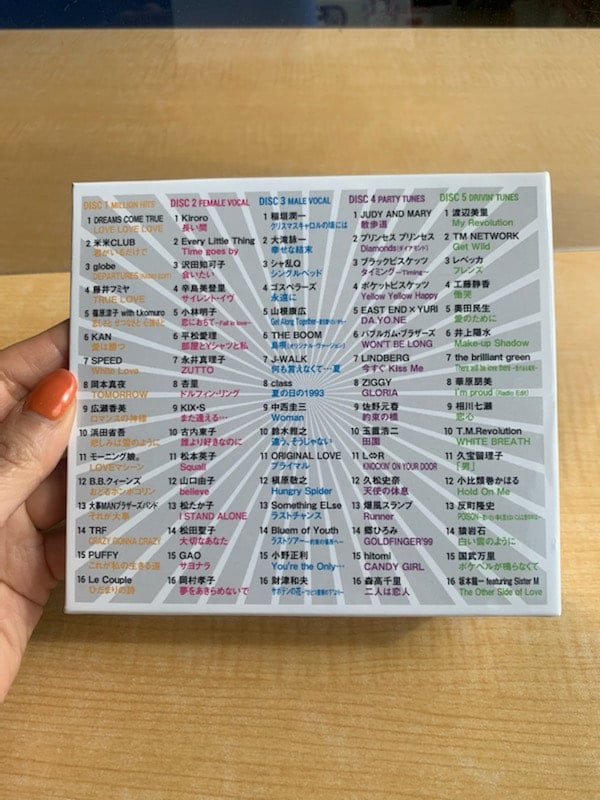 DISC 1 MILLION HITS
1 DREAMS COME TRUE
LOVE LOVE LOVE
2 米米CLUB
君がいるだけで
3 globe
DEPARTURES (RADIO EDIT)
4 藤井フミヤ
TRUE LOVE
5 篠原涼子 with t.komuro
恋しさと せつなさと 心強さと
6 KAN
愛は勝つ
7 SPEED
White Love
8 岡本真夜
TOMORROW
9 広瀬香美
ロマンスの神様
10 浜田省吾
悲しみは雪のように
11 モーニング娘。
LOVEマシーン
12 B.B.クィーンズ
おどるポンポコリン
13 大事MANブラザーズバンド
それが大事
14 TRF
CRAZY GONNA CRAZY
15 PUFFY
これが私の生きる道
16 Le Couple
ひだまりの詩
DISC 2 FEMALE VOCAL
1 Kiroro
長い間
2 Every Little Thing
Time goes by
3 沢田知可子
会いたい
4 辛島美登里
サイレント・イヴ
5 小林明子
恋におちて -Fall in love-
6 平松愛理
部屋とYシャツと私
7 永井真理子
ZUTTO
8 杏里
ドルフィン・リング
9 KIX-S
また逢える…
10 古内東子
誰より好きなのに
11 松本英子
Squall
12 山口由子
believe
13 松たか子
I STAND ALONE
14 松田聖子
大切なあなた
15 GAO
サヨナラ
16 岡村孝子
夢をあきらめないで
DISC 3 MALE VOCAL
1 稲垣潤一
クリスマスキャロルの頃には
2 大滝詠一
幸せな結末
3 シャ乱Q
シングルベッド
4 ゴスペラーズ
永遠に
5 山根康広
Get Along Together
6 THE BOOM
島唄(オリジナル・ヴァージョン)
7 J-WALK
何も言えなくて…夏
8 class
夏の日の1993
9 中西圭三
Woman
10 鈴木雅之
違う、そうじゃない
11 ORIGINAL LOVE
プライマル
12 槇原敬之
Hungry Spider
13 Something ELse
ラストチャンス
14 Bluem of Youth
ラストツアー ~約束の場所へ~
15 小野正利
You're the Only…
16 財津和夫
サボテンの花
DISC 4 PARTY TUNES
1 JUDY AND MARY
散歩道
2 プリンセス プリンセス
Diamonds(ダイアモンド)
3 ブラックビスケッツ
タイミング ~Timing~
4 ポケットビスケッツ
Yellow Yellow Happy
5 EAST END×YURI
DA.YO.NE
6 バブルガム・ブラザーズ
WON'T BE LONG
7 LINDBERG
今すぐ Kiss Me
8 ZIGGY
GLORIA
9 佐野元春
約束の橋
10 玉置浩二
田園
11 L⇔R
KNOCKIN' ON YOUR DOOR
12 久松史奈
天使の休息
13 爆風スランプ
Runner
14 郷ひろみ
GOLDFINGER'99
15 hitomi
CANDY GIRL
16 森高千里
二人は恋人
DISC 5 DRIVIN' TUNES
1 渡辺美里
My Revolution
2 TM NETWORK
Get Wild
3 レベッカ
フレンズ
4 工藤静香
慟哭
5 奥田民生
愛のために
6 井上陽水
Make-up Shadow
7 the brilliant green
There will be love there
8 華原朋美
I'm proud (Radio Edit)
9 相川七瀬
恋心
10 T.M.Revolution
WHITE BREATH
11 久宝留理子
「男」
12 小比類巻かほる
Hold On Me
13 反町隆史
POISON
14 猿岩石
白い雲のように
15 国武万里
ポケベルが鳴らなくて
16 坂本龍一 featuring Sister M
The Other Side of Love